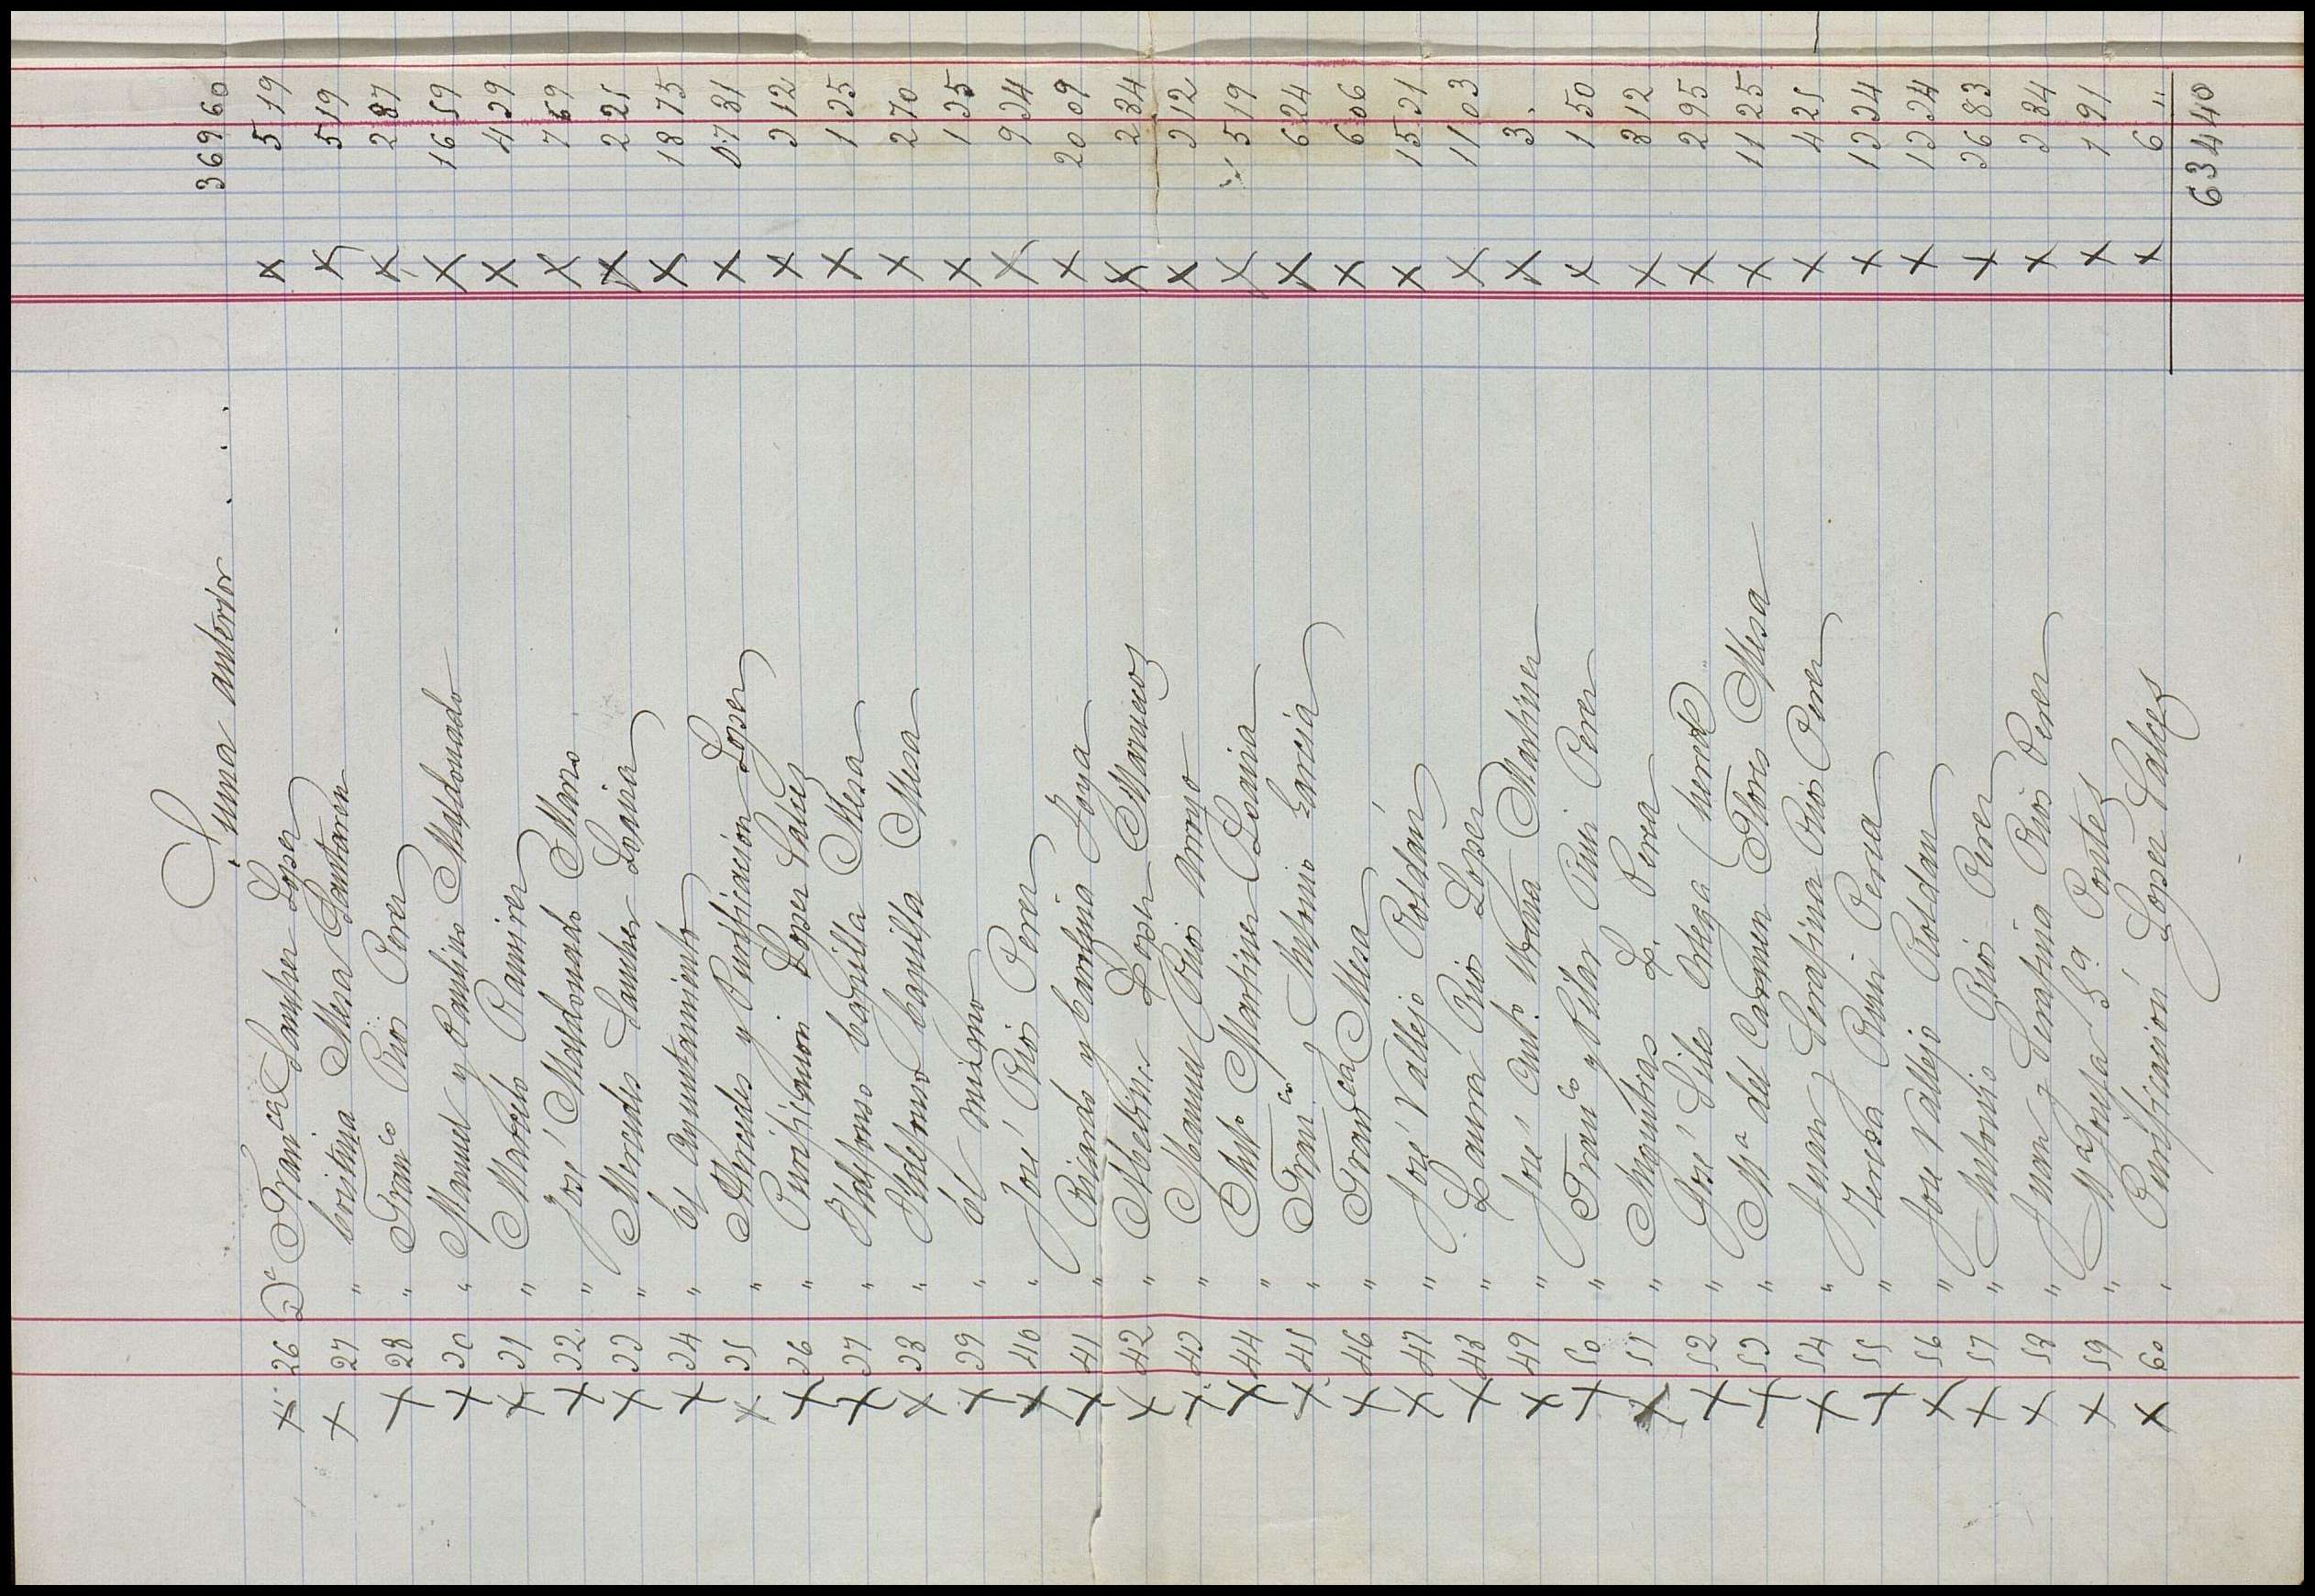 Suma anterior . . . 369 60
X 26 Dª Franca Sanchez Lopez X 5 19
X 27 " Cristina Mesa Santaren X 5 19
X 28 " Franco Ruiz Perez X 2 87
X 30 " Manuel y Paulino Maldonado X 16 59
X 31 " Marcelo Ramirez X 4 39
X 32 " José Maldonado Moro X 7 69
X 33 " Mercedes Sanchez Loaisa X 2 25
X 34 " El Ayuntamiento X 18 75
X 35 " Mercedes y Purificacion Lopez X 07 31
X 36 " Purificacion Lopez Salces X 3 12
X 37 " Ildefonso Capilla Mesa X 1 35
X 38 " Ildefonso Capilla Mesa X 2 70
X 39 " el mismo X 1 35
X 40 " José Ruiz Perez X 9 34
X 41 " Ricardo y Carolina Joya X 20 09
X 42 " Lopez Marruecos X 2 34
X 43 " Manuel Ruiz Arroyo X 3 12
X 44 " Anto Martinez Loaisa X 5 19
X 45 " Franco y Antonio Garcia X 6 24
X 46 " Franca Mesa X 6 06
X 47 " José Vallejo Roldán X 15 31
X 48 " Laura Ruiz Lopez X 11 03
X 49 " José Anto Martinez X 3 "
X 50 " Franco y Pilar Ruiz Perez X 1 50
X 51 " L. Perea X 3 12
X 52 " José Siles Ortega X 2 95
X 53 " Mª del Carmen Flores Mesa X 11 25
X 54 " Juan y Serafina Ruiz Perez X 4 25
X 55 " Teresa Ruiz Perea X 13 34
X 56 " José Vallejo Roldan X 13 34
X 57 " Antonio Ruiz Perez X 36 83
X 58 " Juan y Serafina Ruiz Perez X 3 84
X 59 " Mª Josefa Sª Pontes X 1 91
X 60 " Purificación Lopez Salces X 6 "
634 40